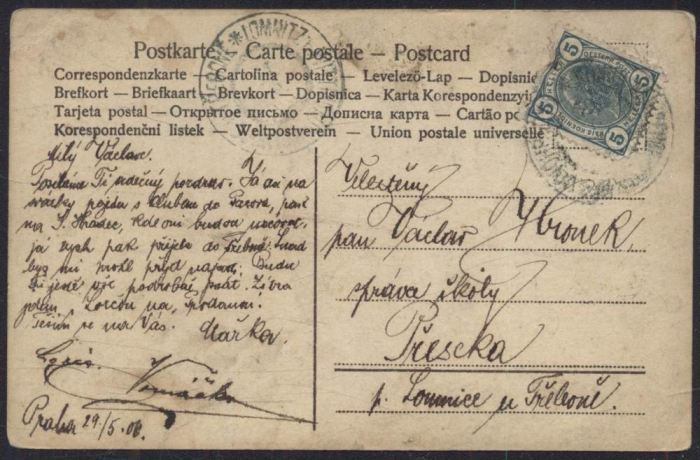 Postkarte — Carte postale — Postcard
Correspondenzkarte — Cartolina postale — Levelező-Lap — Dopisnice
Brefkort — Briefkaart — Brevkort — Dopisnica — Karta Korespondenzyi
Tarjeta postal — Открытое письмо — Дописна карта — Cartão po
Korespondenční listek — Weltpostverein — Union postale universelle
LOMNITZ
5 5
5 5
Milý Václave.
Posílám Ti srdečný pozdrav. Já asi na
svátky pojedu s klubem do
na J. Hradec, kde oni budou nocovat
já bych pak přijela do Třeboně.
bys mi mohl přijít naproti. Budu
Ti ještě vše podrobně psát. Zdraví
Těším se na Vás. Mařka.
Praha 29/5. 06.
Velectěný
pan Václav Hronek
správa školy
Přeseka
p. Lomnice u Třeboně.